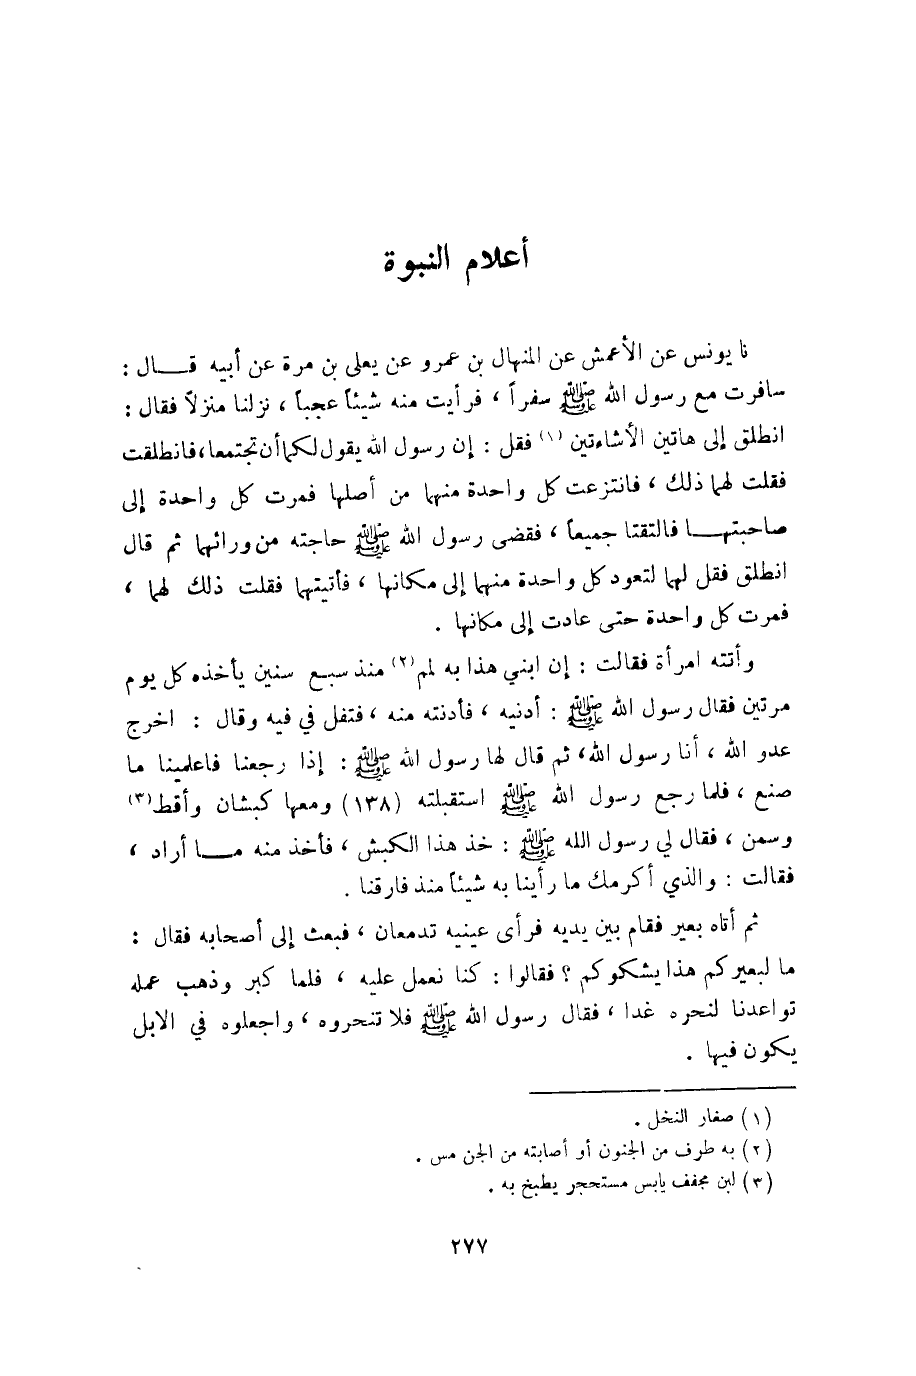 أعلام النبوة
نا يونس عن الأعمش عن المنهال بن عمرو عن يعلى بن مرة عن أبيه قـــال :
سافرت مع رسول الله ﷺ سفراً ، فرأيت منه شيئاً عجباً ، نزلنا منزلاً فقال :
انطلق إلى هاتين الأشاءتين (١) فقل : إن رسول الله يقول لكما أن تجتمعا ، فانطلقت
فقلت لهما ذلك ، فانتزعت كل واحدة منهما من أصلها فمرت كل واحدة إلى
صاحبتهـــا فالتقتا جميعاً ، فقضى رسول الله ﷺ حاجته من ورائهما ثم قال
انطلق فقل لهما لتعود كل واحدة منهما إلى مكانها ، فأتيتهما فقلت ذلك لهما ،
فمرت كل واحدة حتى عادت إلى مكانها .
وأتته امرأة فقالت : إن ابني هذا به لمم (٢) منذ سبع سنين يأخذه كل يوم
مرتين فقال رسول الله ﷺ : أدنيه ، فأدنته منه ، فتفل في فيه وقال : اخرج
عدو الله ، أنا رسول الله ، ثم قال لها رسول الله ﷺ : إذا رجعنا فاعلمينا ما
صنع ، فلما رجع رسول الله ﷺ استقبلته (١٣٨) ومعها كبشان وأقط (٣)
وسمن ، فقال لي رسول الله ﷺ : خذ هذا الكبش ، فأخذ منه مـــا أراد ،
فقالت : والذي أكرمك ما رأينا به شيئاً منذ فارقنا .
ثم أتاه بعير فقام بين يديه فرأى عينيه تدمعان ، فبعث إلى أصحابه فقال :
ما لبعيركم هذا يشكوكم ؟ فقالوا : كنا نعمل عليه ، فلما كبر وذهب عمله
تواعدنا لنحره غدا ، فقال رسول الله ﷺ فلا تنحروه ، واجعلوه في الابل
يكون فيها .
(١) صغار النخل .
(٢) به طرف من الجنون أو أصابته من الجن مس .
(٣) لبن مجفف يابس مستحجر يطبخ به .
٢٧٧